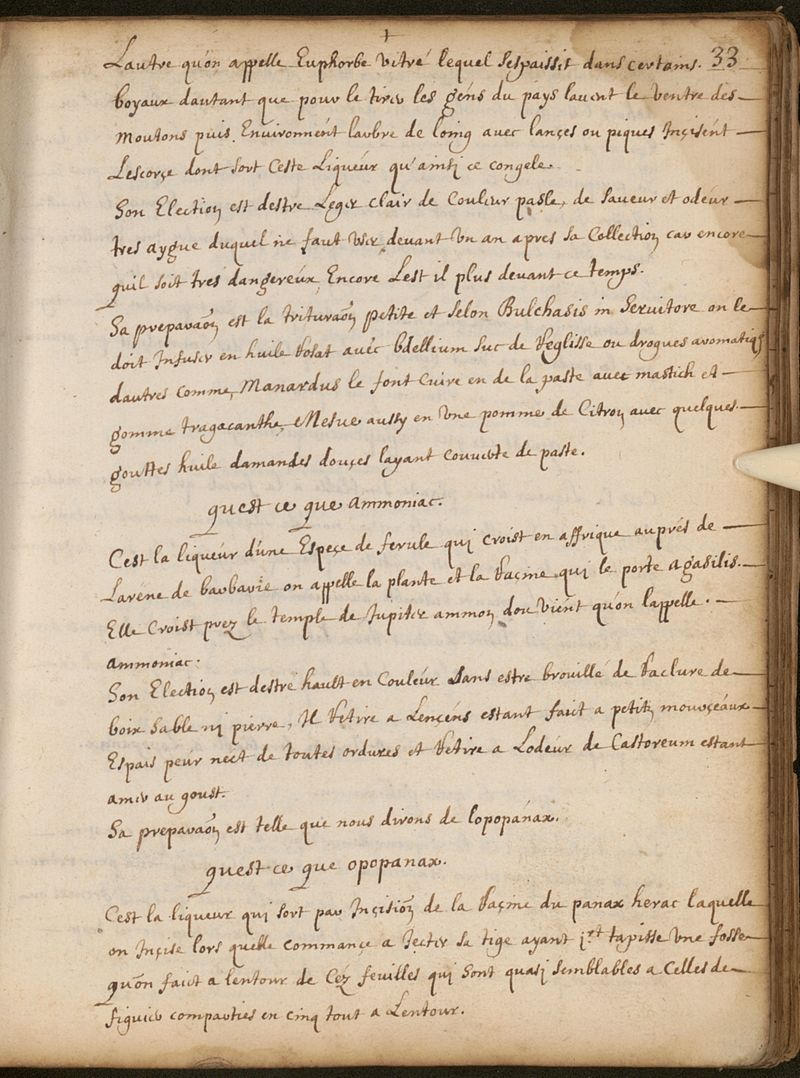 +
Lautre qu'on appelle Euphorbe vitré lequel sespaissit dans certains. 33
boyaux dautant que pour le tirer les géns du pays lavent le ventre des
moutons puis Environnent larbre de loing avec lançes ou piques Inçisent
Lescorçe dont sort Ceste Liqueur qu'ainsj ce congele.
Son Election est destre Leger clair de Couleur pasle, de saveur et odeur
tres aygue duquel ne faut user devant un an apres sa Collection car encore
quil soit tres dangereux Encore Lest il plus devant ce temps.
Sa preparaõn est la trituraõn petite et selon Bulchasis in Servitore on le
doit Infuser en huile Rosat avec bdellium suc de Reglisse ou drogues aromatiq
dautres comme, Manardus le font Cuire en de la paste avec mastich et
gomme tragacanthe, Mesue aussy en une pomme de Citron avec quelques
gouttes huile damandes douçes layant couverte de paste.
quest ce que ammoniac.
Cest la liqueur d'une Espeçe de ferule qui croist en affrique auprés de
Larene de barbarie on appelle la plante et la Raçine qui le porte agasilis.
Elle Croist prez le temple de Jupiter ammon dou vient qu'on lappelle.
ammoniac.
Son Election est destre hault en Couleur sans estre brouillé de Raclure de
boix sable nj pierre, Il Retire a Lençens estant faict a petits mourçeaux
Espais peur nect de toutes ordures et Retire a Lodeur de Castoreum estant
amer au goust.
Sa preparaõn est telle que nous dirons de lopopanax.
quest ce que opopanax.
C'est la liqueur qui sort par Inçisiõn de la Raçine du panax herac laquelle
on Inçise lors quelle commançe a Jecter sa tige ayant tapisse une fosse
qu'on faict a lentour de Cez feuilles qui sont quasj semblables a Celles de
figuier comparties en cinq tout a Lentour.